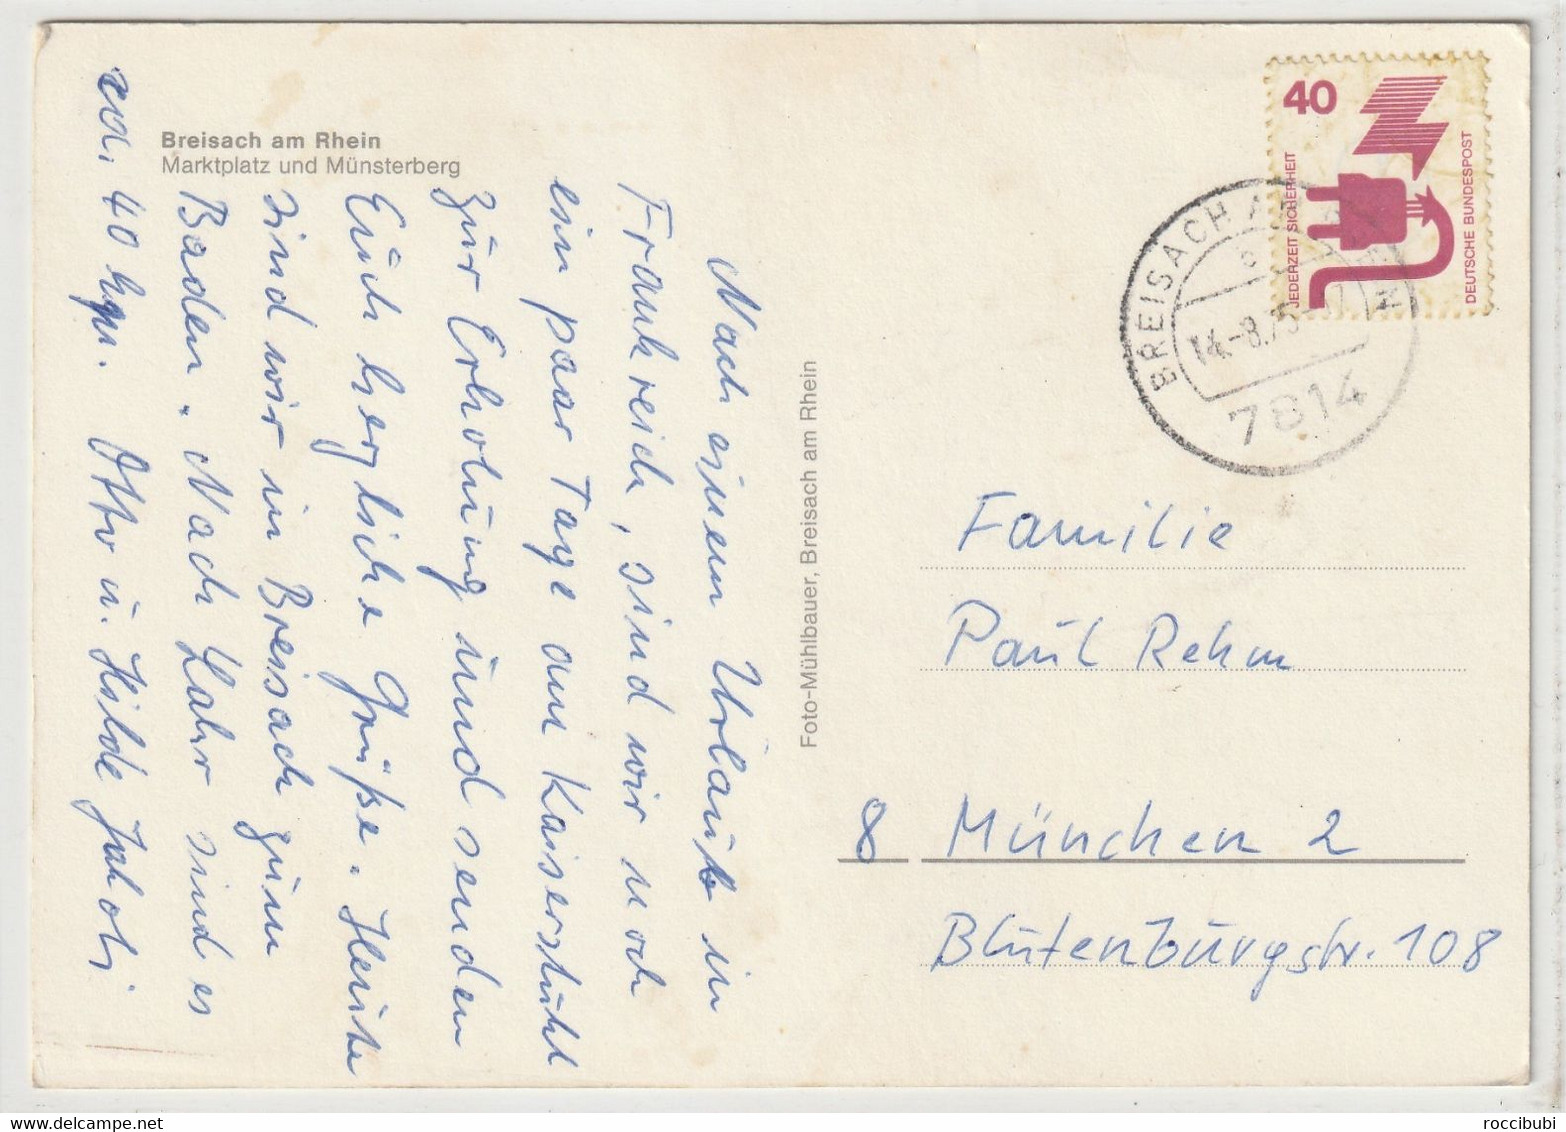 Breisach am Rhein
Marktplatz und Münsterberg
Nach einem Urlaub in
Frankreich, sind wir noch
ein paar Tage am Kaiserstuhl
zur Erholung und senden
Euch herzliche Grüße. Heute
sind wir in Breisach zum
Baden. Nach Lahr sind es
40 km. Otto u. Hilde
Foto-Mühlbauer, Breisach am Rhein
40
JEDERZEIT SICHERHEIT
DEUTSCHE BUNDESPOST
BREISACH AM RHEIN
c
14.-8.75-17
7814
Familie
Paul Rehm
8 München 2
Blutenburgstr. 108
roccibubi